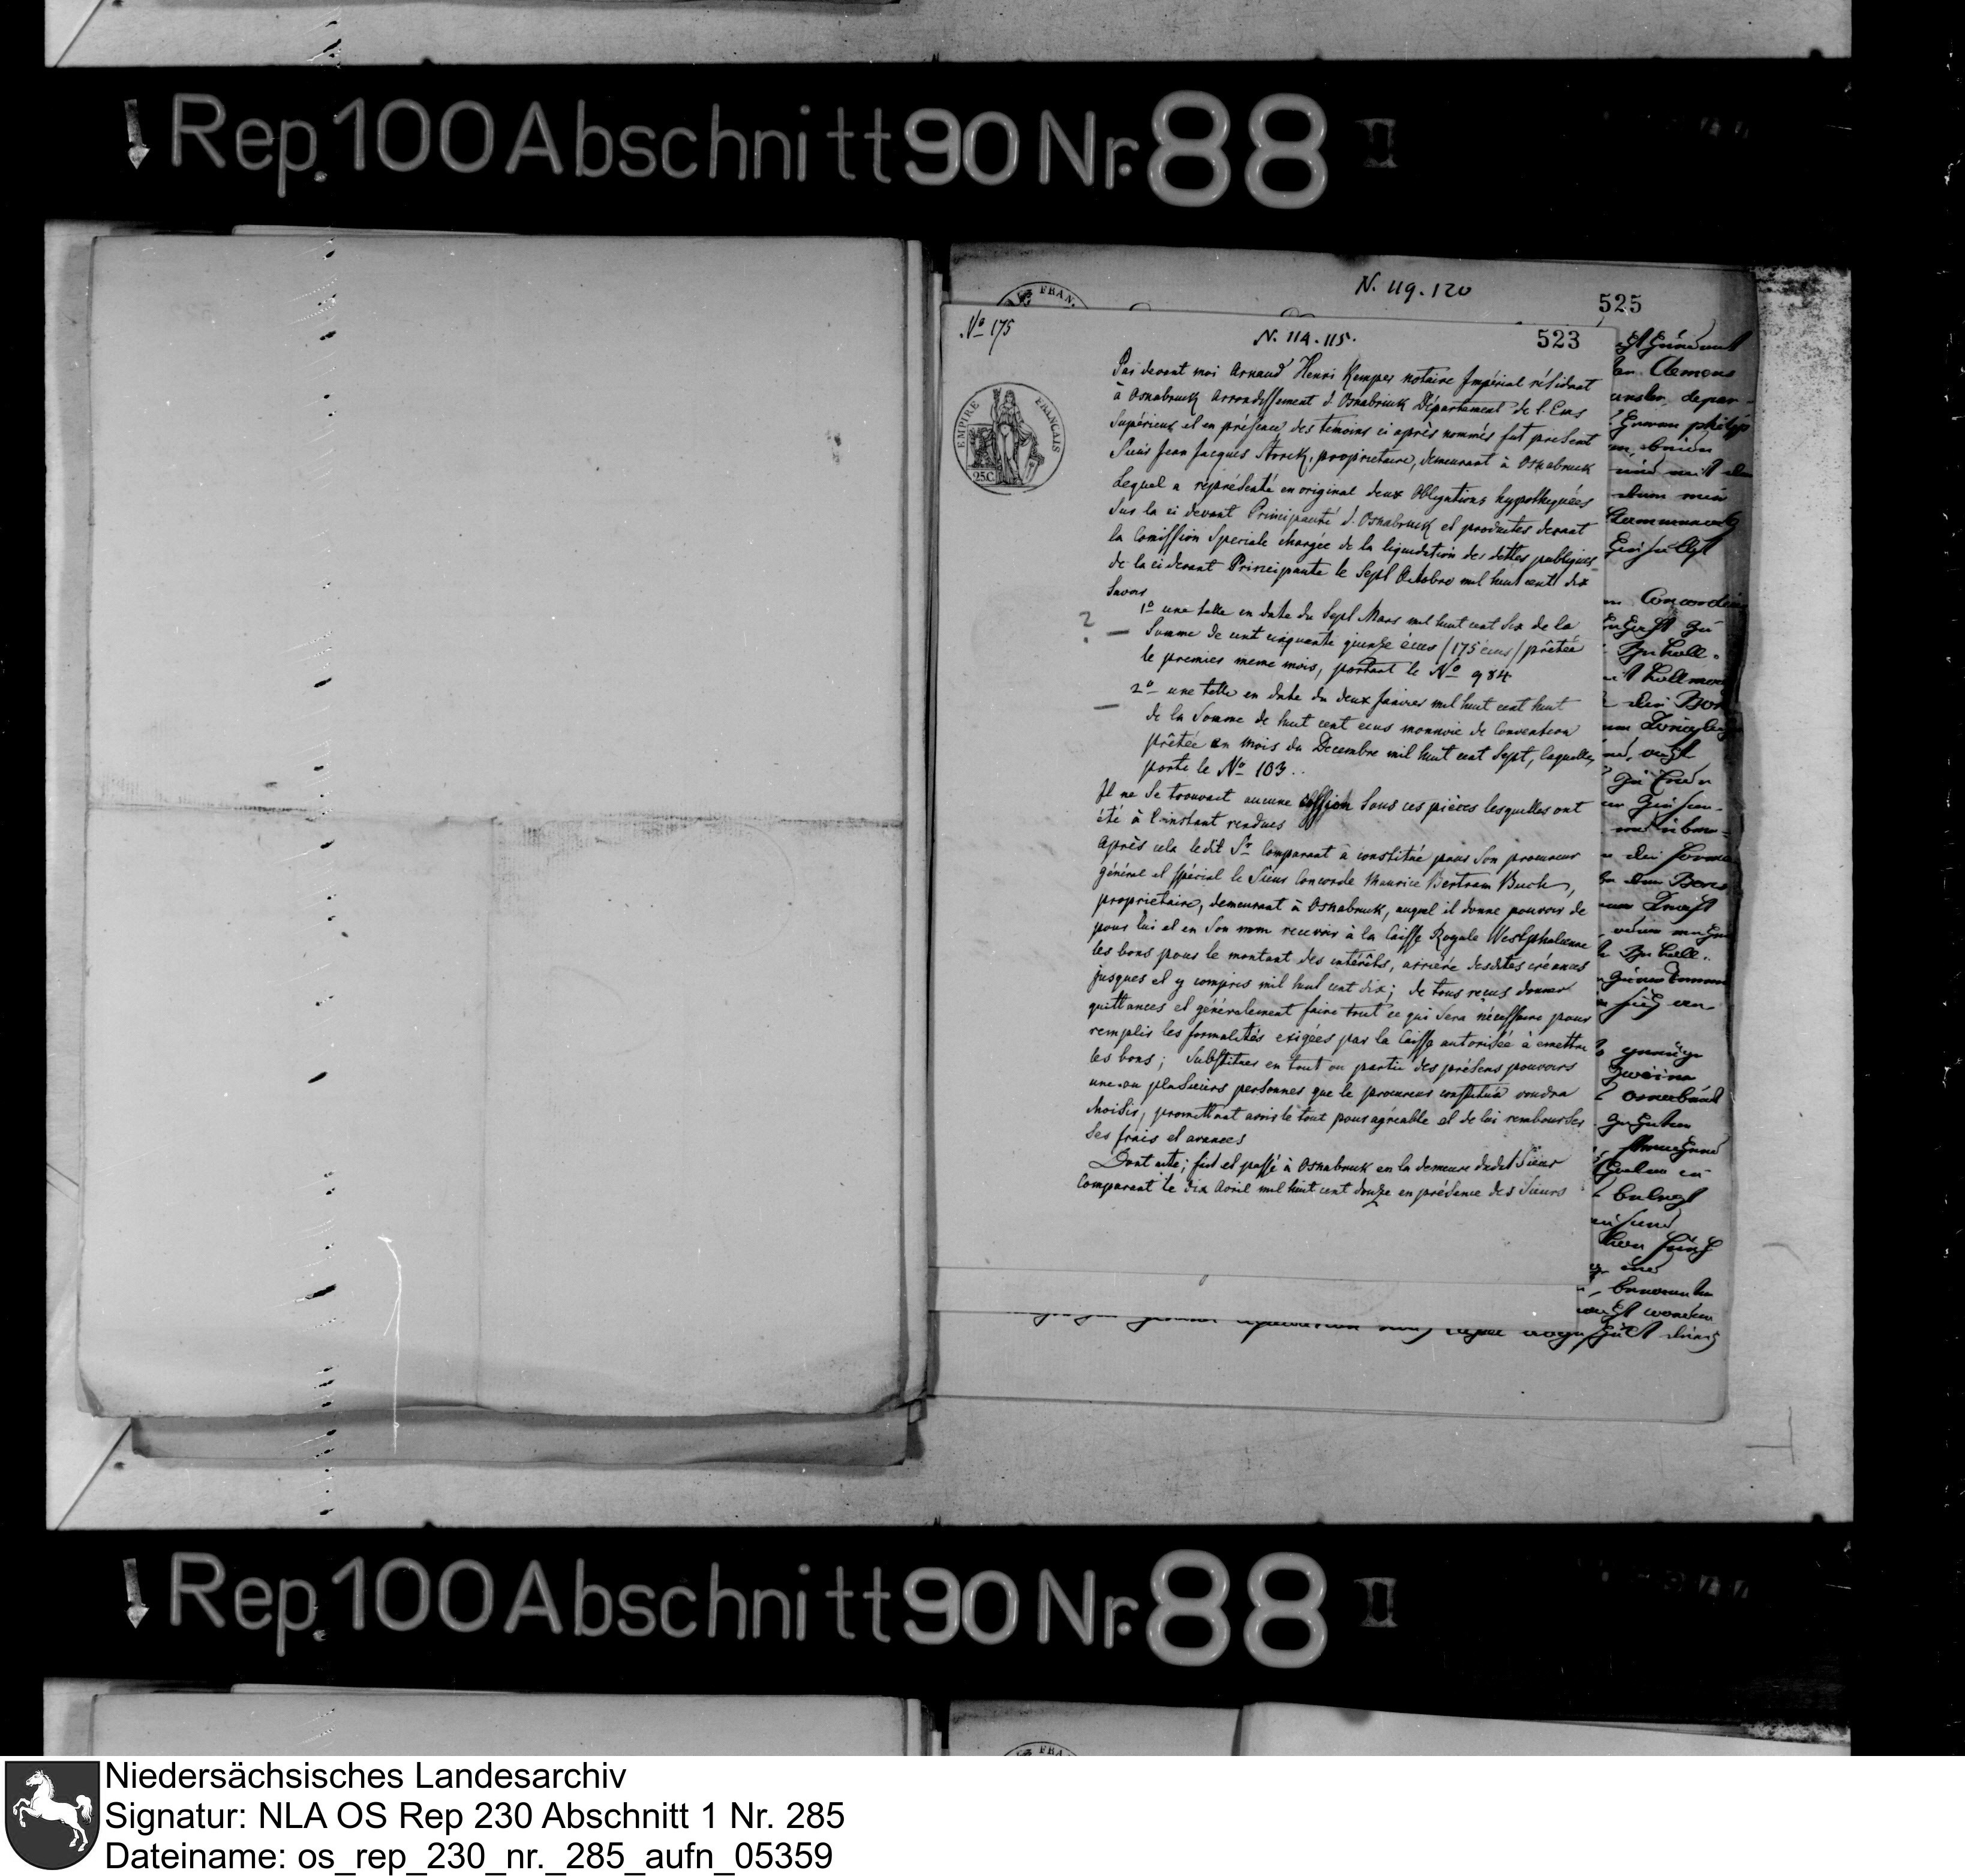 Rep. 100 Abschnitt 90 Nr. 88 II
N. 119. 120
525
No 175
N. 114. 115.
523
EMPIRE FRANÇAIS
25C
Par devant moi Arnaud Henri Kemper notaire Impérial résidant
à Osnabruck arrondissement d'Osnabruck Département de l'Ems
Supérieur et en présence des témoins ci après nommés fut present
Sieur Jean Jacques Storck, propriétaire, demeurant à Osnabruck
Lequel a représenté en original deux Obligations hypothequées
sur la ci devant Principauté d'Osnabruck et produites devant
la Comission Speciale chargée de la liquidation des dettes publiques
de la ci devant Principauté le Sept Octobre mil huit cent dix
Savoir
1o une telle en date du Sept Mars mil huit cent Six de la
? — Somme de cent cinquante quinze écus /175 écus/ prêtée
le premier meme mois, portant le No 984
2o une telle en date du deux Janvier mil huit cent huit
— de la Somme de huit cent ecus monnoie de Convention
prêtée en mois du Decembre mil huit cent Sept, laquelle
porte le No 103..
Il ne se trouvait aucune cession sous ces pièces lesquelles ont
été à l'instant rendues
Après cela ledit Sr Comparant a constitué pour Son procureur
général et spécial le Sieur Concorde Maurice Bertram Buch,
propriétaire, demeurant à Osnabruck, auquel il donne pouvoir de
pour lui et en Son nom recevoir à la Caisse Royale Westphalienne
les bons pour le montant des intérêts, arrière desdites créances
jusques et y compris mil huit cent dix; de tous recus donner
quittances et généralement faire tout ce qui Sera nécessaire pour
remplir les formalités exigées par la Caisse autorisée à emettre
les bons; Substituer en tout ou partie des présens pouvoirs
une ou plusieurs personnes que le procureur constitué voudra
choisir, promettant avoir le tout pour agréable et de lui rembourser
Ses frais et avances
Dont acte; fait et passé à Osnabruck en la demeure dudit Sieur
Comparant le dix Avril mil huit cent douze en présence des Sieurs
Clemens
Concordia
Rep. 100 Abschnitt 90 Nr. 88 II
Niedersächsisches Landesarchiv
Signatur: NLA OS Rep 230 Abschnitt 1 Nr. 285
Dateiname: os_rep_230_nr._285_aufn_05359